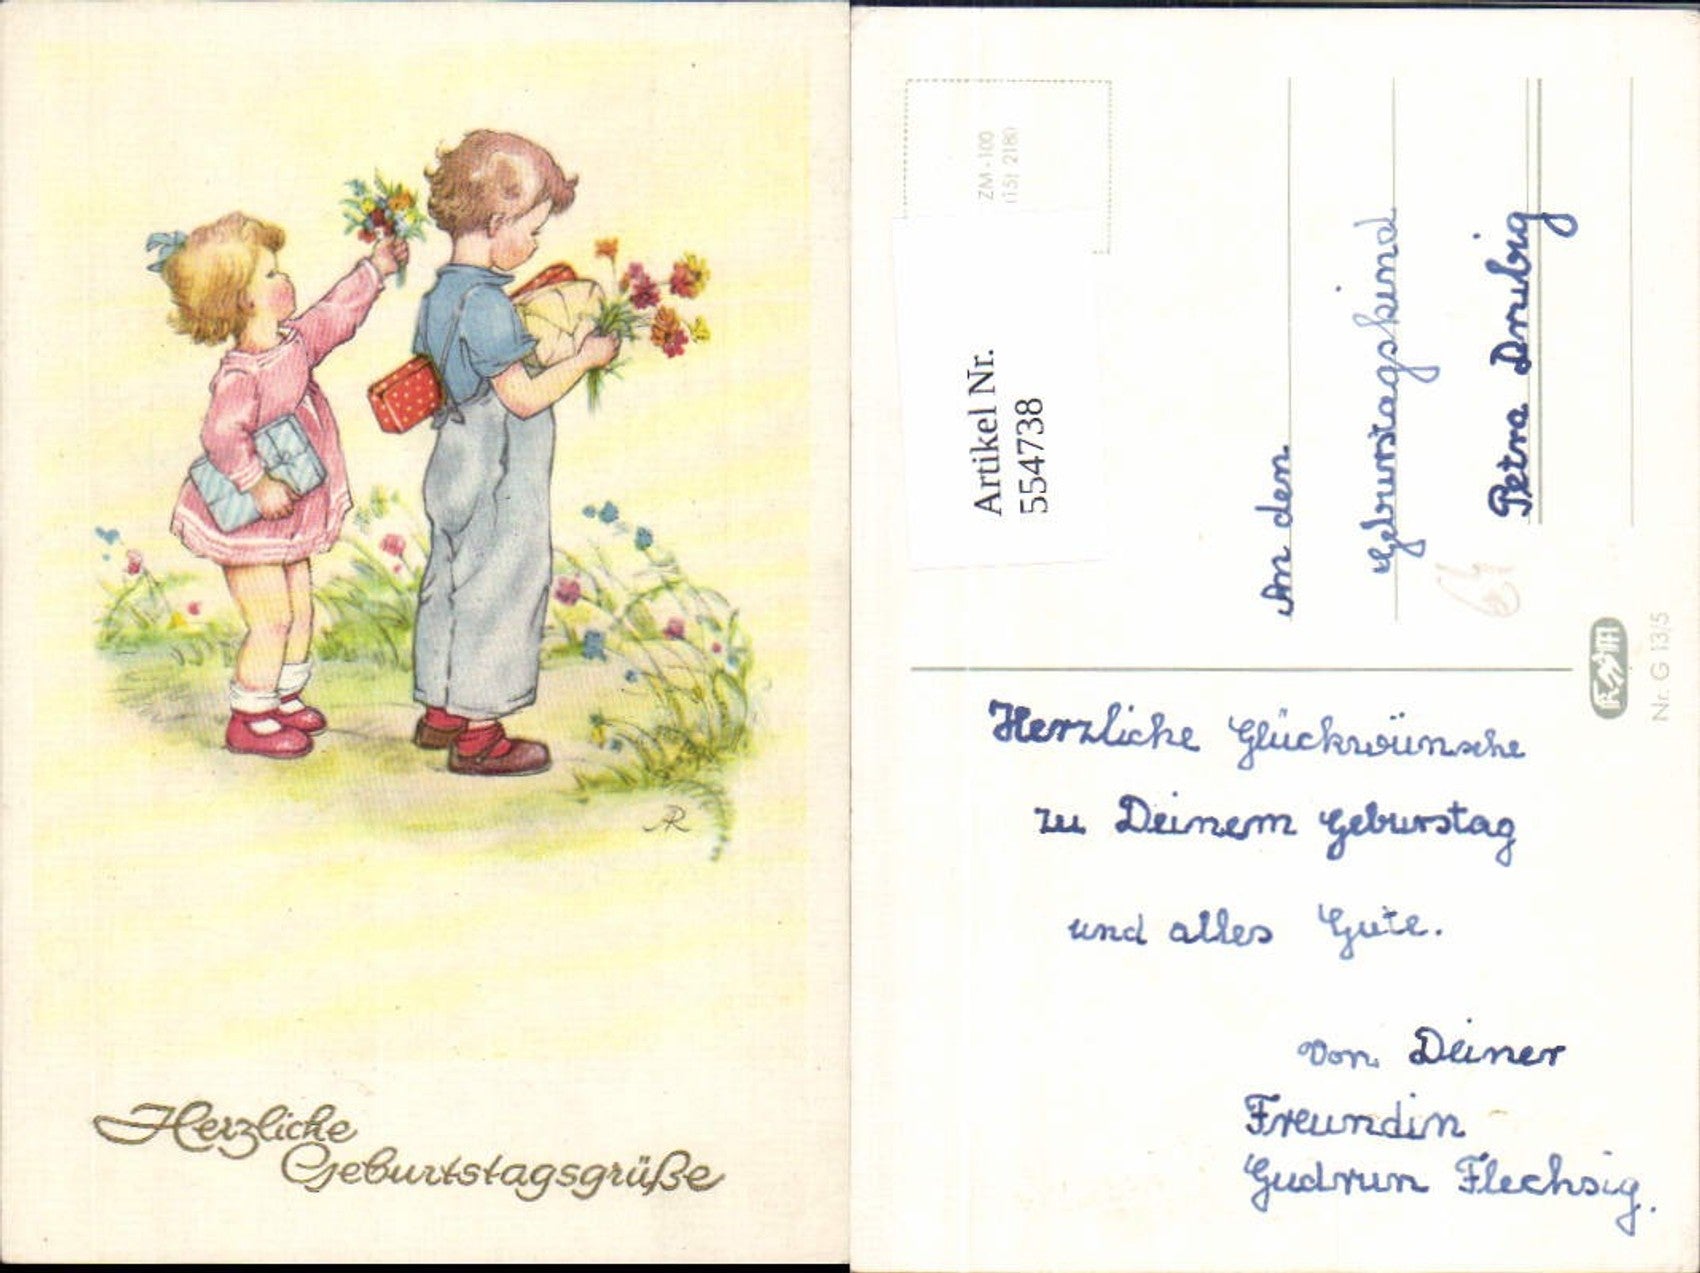 Herzliche
Geburtstagsgrüße
ZM-100
(15) 2180
Artikel Nr.
554738
An den
Geburstagskind
Petra
Nr. G 13/5
Herzliche Glückwünsche
zu Deinem Geburstag
und alles Gute.
von Deiner
Freundin
Gudrun Flechsig.